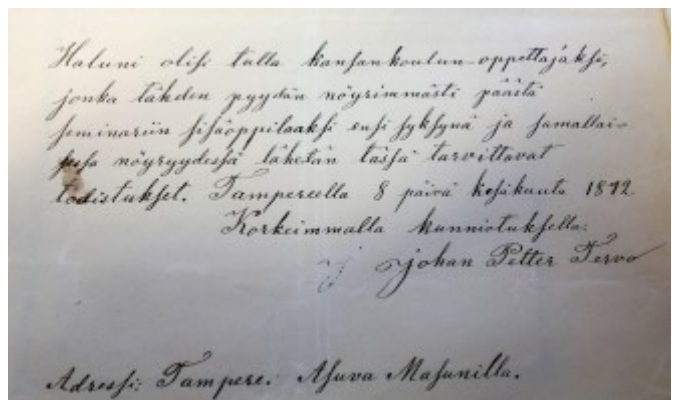 Haluni olisi tulla kansankoulun-opettajaksi,
jonka tähden pyydän nöyrimmästi päästä
seminariin sisäoppilaaksi ensi syksynä ja samallai-
sessa nöyryydessä lähetän tässä tarvittavat
todistukset. Tampereella 8 päivä kesäkuuta 1872
Korkeimmalla kunnioituksella:
Johan Petter Tervo
Adressi: Tampere. Asuva Masunilla.